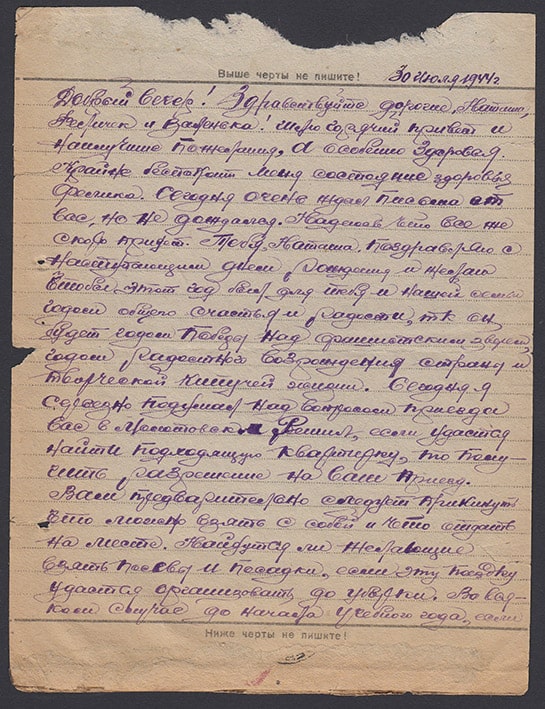 Выше черты не пишите! 30 июля 1944 г
Добрый вечер! Здравствуйте дорогие, Наташа,
и Валенька! Шлю горячий привет и
наилучшие пожелания, а особенно здоровья
Крайне беспокоит меня состояние здоровья
Фелика. Сегодня очень ждал письма от
вас, но не дождался. Надеюсь что все же
скоро придет. Тебя Наташа поздравляю с
наступающим днем рождения и желаю
чтобы этот год был для тебя и нашей семьи
годом общего счастья и радости, тк он
будет годом победы над фашистским зверем,
годом радостного возрождения страны и
творческой кипучей жизни. Сегодня я
серьезно подумал над вопросом приезда
вас в и решил, если удастся
найти подходящую квартирку, то полу-
чить разрешение на ваш приезд.
Вам предварительно следует прикинуть
что можно взять с собой и что отдать
на месте. Найдутся ли желающие
взять посевы и посадки, если эту поездку
удастся организовать до уборки. Во вся-
ком случае до начала учебного года, если
Ниже черты не пишите!